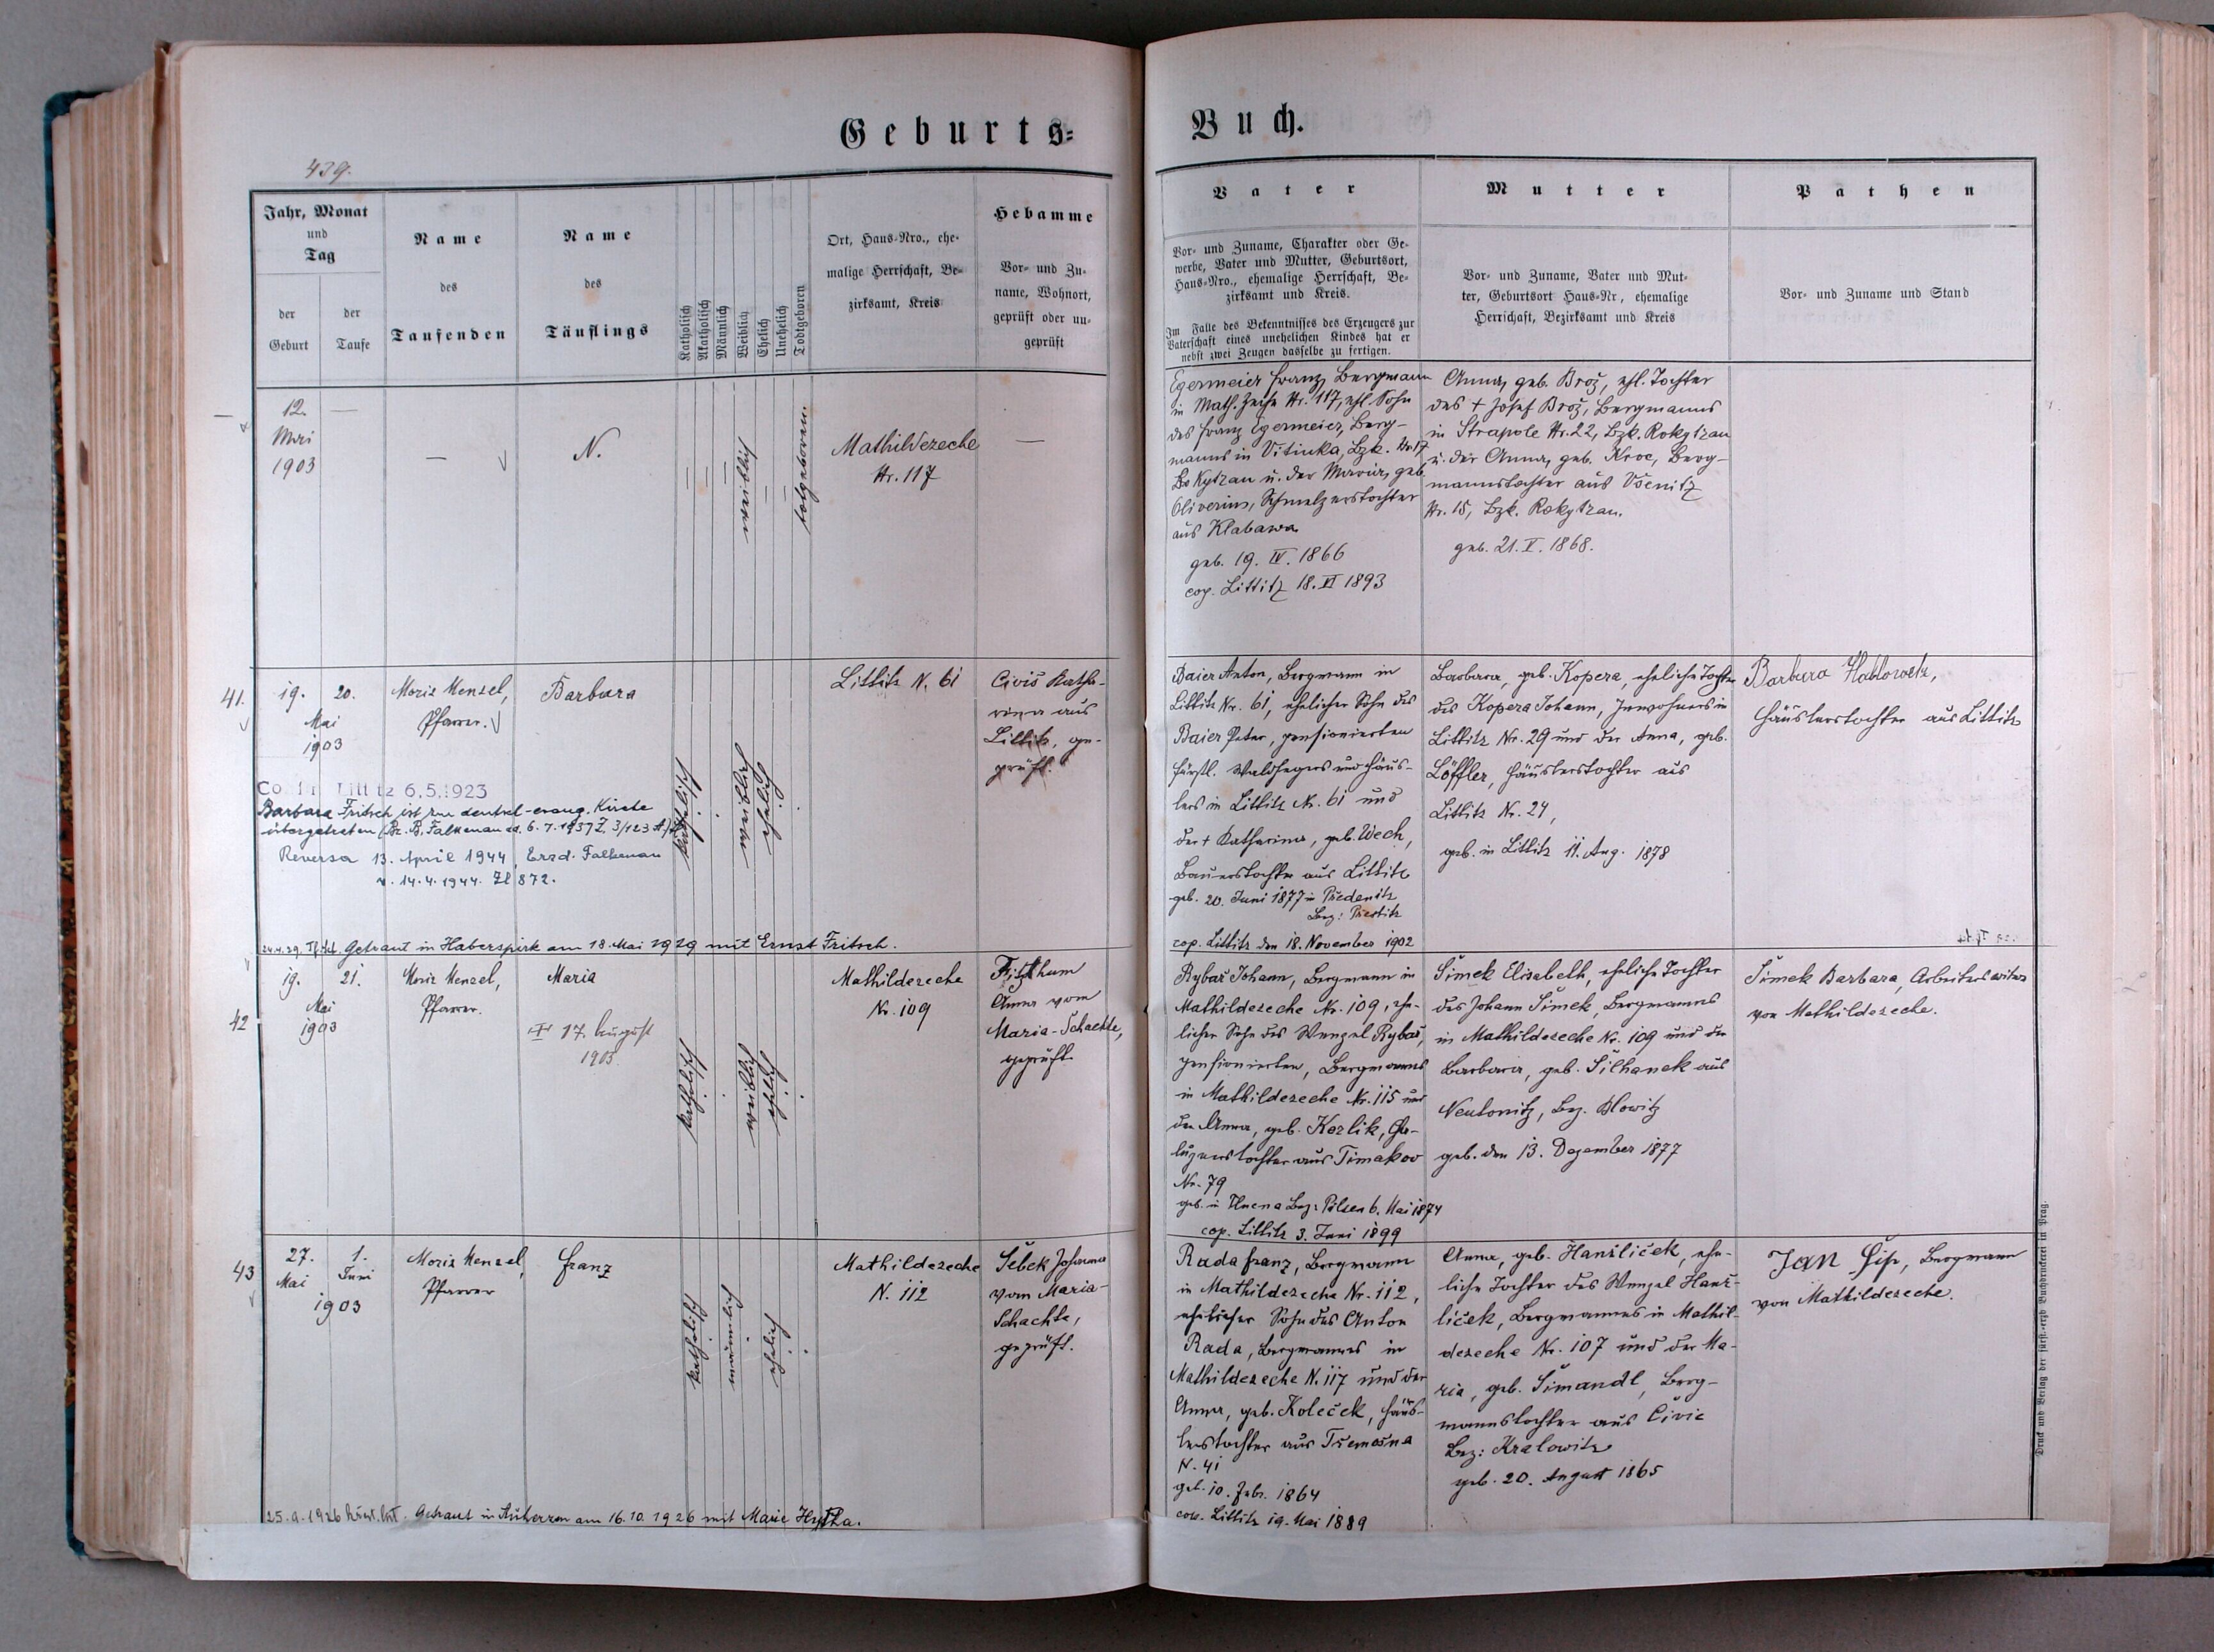 Geburts=
Buch.
439.
Jahr, Monat
und
Tag
der
Geburt
der
Taufe
Name
des
Taufenden
Name
des
Täuflings
Katholisch
Akatholisch
Männlich
Weiblich
Ehelich
Unehelich
Todtgeboren
Ort, Haus-Nro., ehe-
malige Herrschaft, Be-
zirksamt, Kreis
Hebamme
Vor- und Zu-
name, Wohnort,
geprüft oder un-
geprüft
Vater
Vor- und Zuname, Charakter oder Ge-
werbe, Vater und Mutter, Geburtsort,
Haus-Nro., ehemalige Herrschaft, Be-
zirksamt und Kreis.
Im Falle des Bekenntnisses des Erzeugers zur
Vaterschaft eines unehelichen Kindes hat er
nebst zwei Zeugen dasselbe zu fertigen.
Mutter
Vor- und Zuname, Vater und Mut-
ter, Geburtsort Haus-Nr, ehemalige
Herrschaft, Bezirksamt und Kreis
Pathen
Vor- und Zuname und Stand
12.
Mai
1903
—
—
N.
weiblich
totgeboren.
Mathildezeche
Nr. 117
—
Egermeier Franz, Bergmann
in Math. Zeche Nr. 117, ehl. Sohn
des Franz Egermeier, Berg-
manns in Vitinka, Bzk. Nr. 17
Rokytzan u. der Maria, geb.
Oliverius, Schmelzerstochter
aus Klabawa
geb. 19. IV. 1866
cop. Littitz 18. VI 1893
Anna, geb. Brož, ehl. Tochter
des + Josef Brož, Bergmanns
in Strapole Nr. 22, Bzk. Rokytzan
u. der Anna, geb. Kroc, Berg-
mannstochter aus Všenitz
Nr. 15, Bzk. Rokytzan.
geb. 21. V. 1868.
41.
19. 20.
Mai
1903
Moriz Menzel,
Pfarrer.
Barbara
katholisch
weiblich
ehelich
Littitz N. 61
Civiš Katha-
rina aus
Littitz, ge-
prüft.
Littitz 6.5.1923
Barbara Fritsch ist zur deutsch-evang. Kirche
übergetreten (Bz. B. Falkenau dd. 6. 7. 1937 Z. 3/123
Reversa 13. April 1944, Erzd. Falkenau
v. 14.4.1944. Zl 872.
Getraut in Haberspirk am 18. Mai 1929 mit Ernst Fritsch.
Baier Anton, Bergmann in
Littitz Nr. 61, ehelicher Sohn des
Baier Peter, pensionierten
fürstl. Waldhegers und Häus-
lers in Littitz Nr. 61 und
der + Katharina, geb. Wech,
Bauerstochter aus Littitz
geb. 20. Juni 1877 in Předenitz
Bez: Přestitz
cop. Littitz den 18. November 1902
Barbara, geb. Kopera, eheliche Tochter
des Kopera Johann, Inwohners in
Littitz Nr. 29 und der Anna, geb.
Löffler, Häuslerstochter aus
Littitz Nr. 24,
geb. in Littitz 11. Aug. 1878
Barbara
Häuslerstochter aus Littitz
42
19. 21.
Mai
1903
Moriz Menzel,
Pfarrer.
Maria
17. August
1903.
katholisch
weiblich
ehelich
Mathildezeche
Nr. 109
Fizthum
Anna vom
Maria-Schachte,
geprüft.
Rybař Johann, Bergmann in
Mathildezeche Nr. 109, ehe-
licher Sohn des Wenzel Rybař,
pensionierten, Bergmanns
in Mathildezeche Nr. 115 und
der Anna, geb. Kozlik,
aus Timakov
Nr. 79
geb. in Bez: Pilsen 6. Mai 1874
cop. Littitz 3. Juni 1899
Šimek Elisabeth, eheliche Tochter
des Johann Šimek, Bergmannes
in Mathildezeche Nr. 109 und der
Barbara, geb. Šilhanek aus
Neulonitz, Bez. Blowitz
geb. den 13. Dezember 1877
Šimek Barbara, Arbeiterswitwe
von Mathildezeche.
43
27. 1.
Mai Juni
1903
Moriz Menzel,
Pfarrer
Franz
katholisch
männlich
ehelich
Mathildezeche
N. 112
Šebek Johanna
vom Maria-
Schachte,
geprüft.
Getraut in am 16.10.1926 mit Marie
Rada Franz, Bergmann
in Mathildezeche Nr. 112,
ehelicher Sohn des Anton
Rada, Bergmannes in
Mathildezeche N. 117 und der
Anna, geb. Koleček, Häus-
lerstochter aus Třemošna
N. 41
geb. 10. Febr. 1864
cop. Littitz 19. Mai 1889
Anna, geb. Hanzliček, ehe-
liche Tochter des Wenzel Hanz-
liček, Bergmannes in Mathil-
dezeche Nr. 107 und der Ma-
ria, geb. Šimandl, Berg-
mannstochter aus Civic
Bez: Kralowitz
geb. 20. August 1865
Jan Šip, Bergmann
von Mathildezeche.
Druck und Verlag der fürst.-erzb Buchdruckerei in Prag.